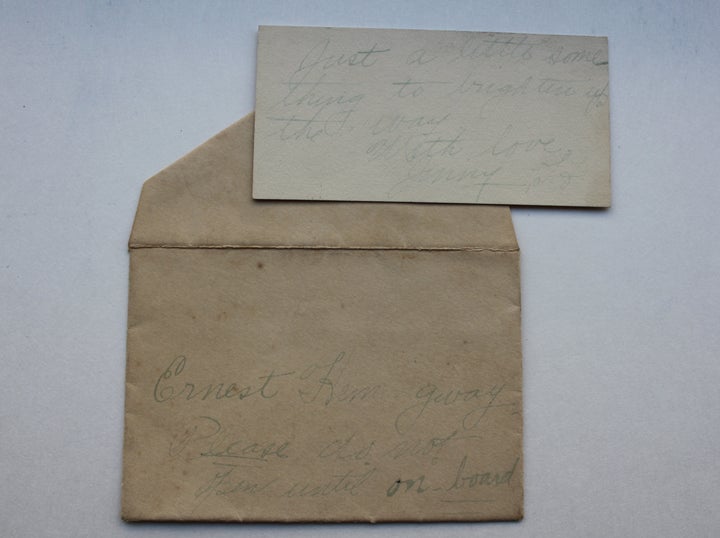 Just a little some
thing to brighten up
the way
With love
Jenny
Ernest Hemingway
Please do not
until on board